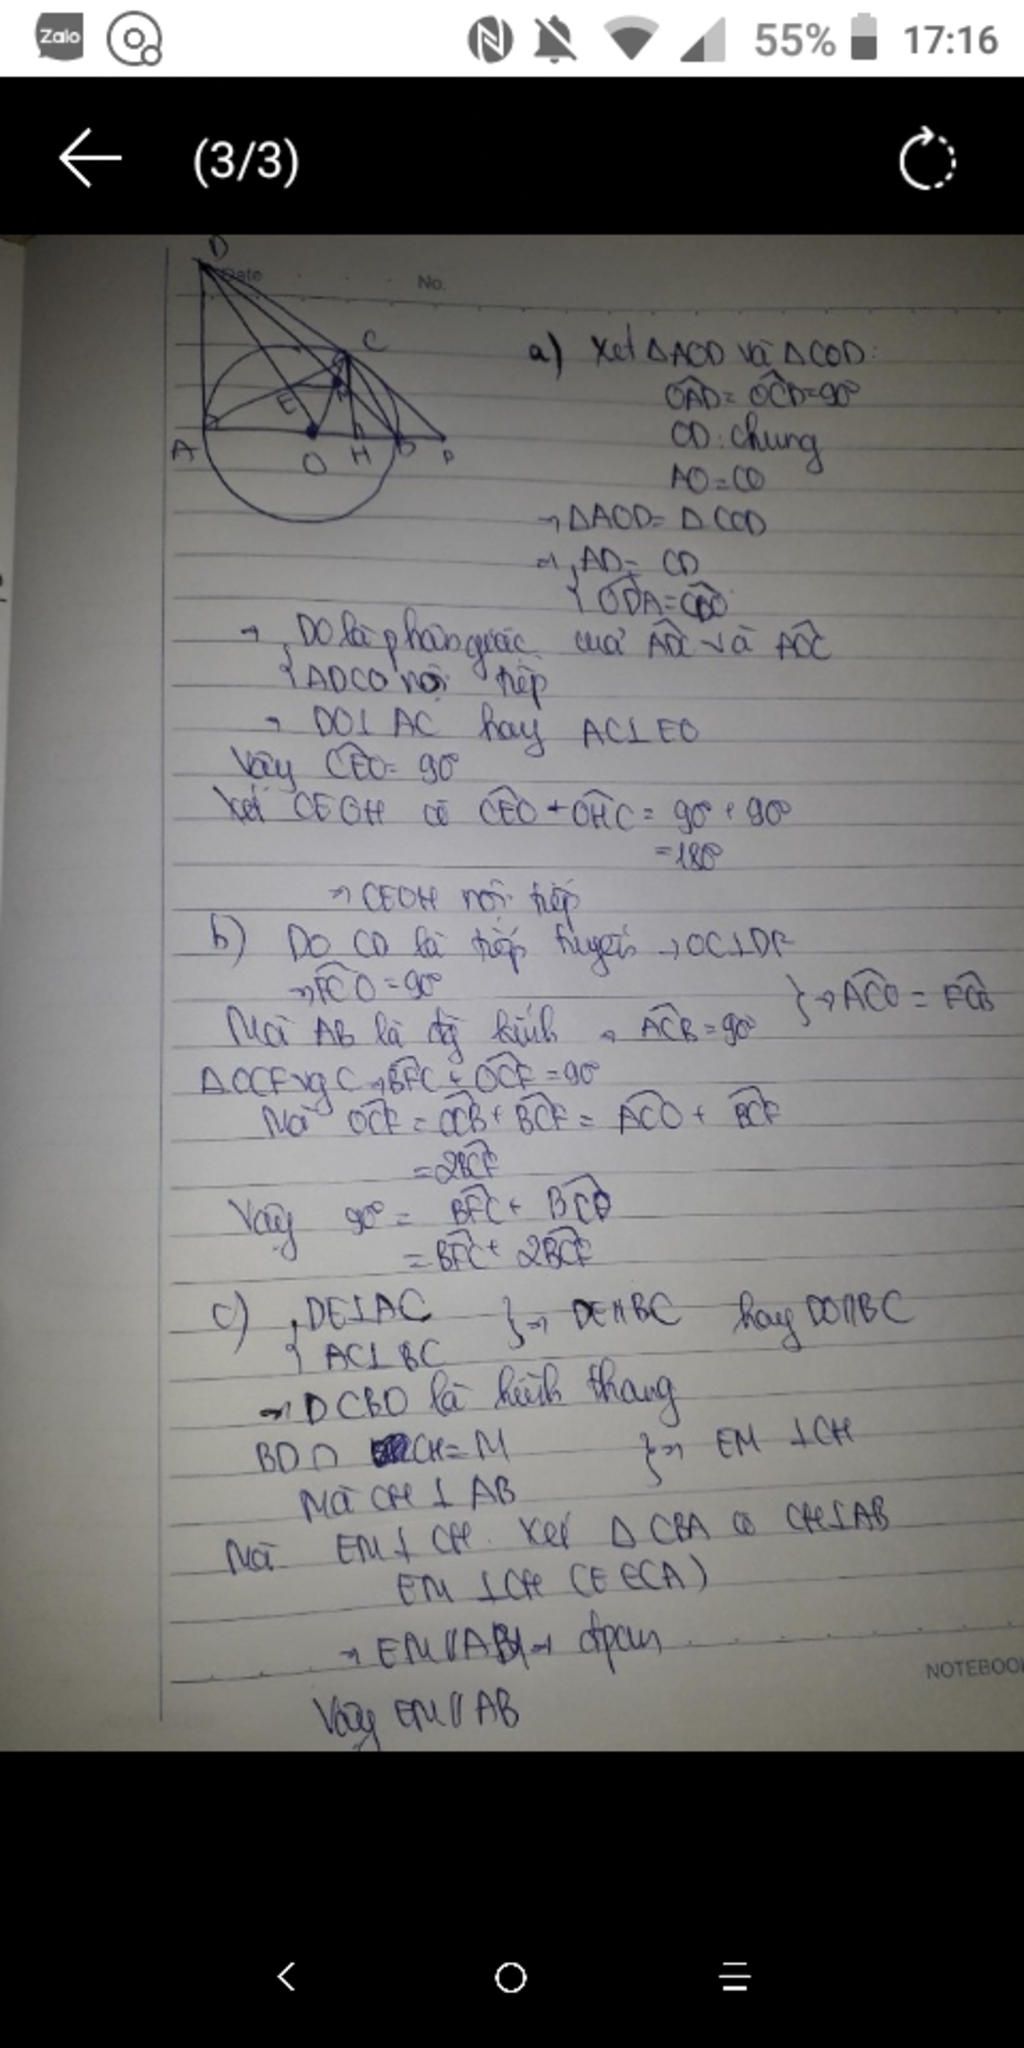 Zalo
55%
17:16
(3/3)
Date
No.
D
C
E
M
A
O
H
B
F
a) Xét ΔAOD và ΔCOD:
OAD = OCD = 90°
OD: chung
AO = CO
→ ΔAOD = ΔCOD
→ { AD = CD
ODA = CDO
→ { DO là phân giác của ADC và AOC
ADCO nội tiếp
→ DO ⊥ AC hay AC ⊥ EO
Vậy CEO = 90°
Xét CEOH có CEO + OHC = 90° + 90°
= 180°
→ CEOH nội tiếp
b) Do CD là tiếp tuyến → OC ⊥ DF
→ FCO = 90°
Mà AB là đg kính → ACB = 90° } → ACO = FCB
ΔOCF vg C → BFC + OCF = 90°
Mà OCF = OCB + BCF = ACO + BCF
= 2BCF
Vậy 90° = BFC + BCO
= BFC + 2BCF
c) { DE ⊥ AC
AC ⊥ BC } → DE // BC hay DO // BC
→ DCBO là hình thang
BD ∩ CH = M
Mà CH ⊥ AB } → EM ⊥ CH
Mà EM ⊥ CH. Xét Δ CBA có CH ⊥ AB
EM ⊥ CH (E ∈ CA)
→ EM // AB → đpcm
NOTEBOO
Vậy EM // AB